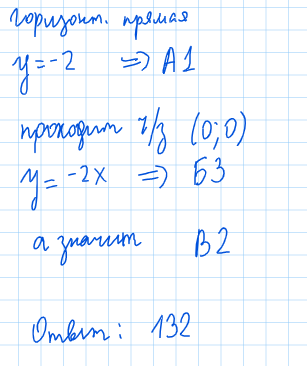 горизонт. прямая
y=-2 => А1
проходит ч/з (0;0)
y=-2x => Б3
а значит В2
Ответ: 132